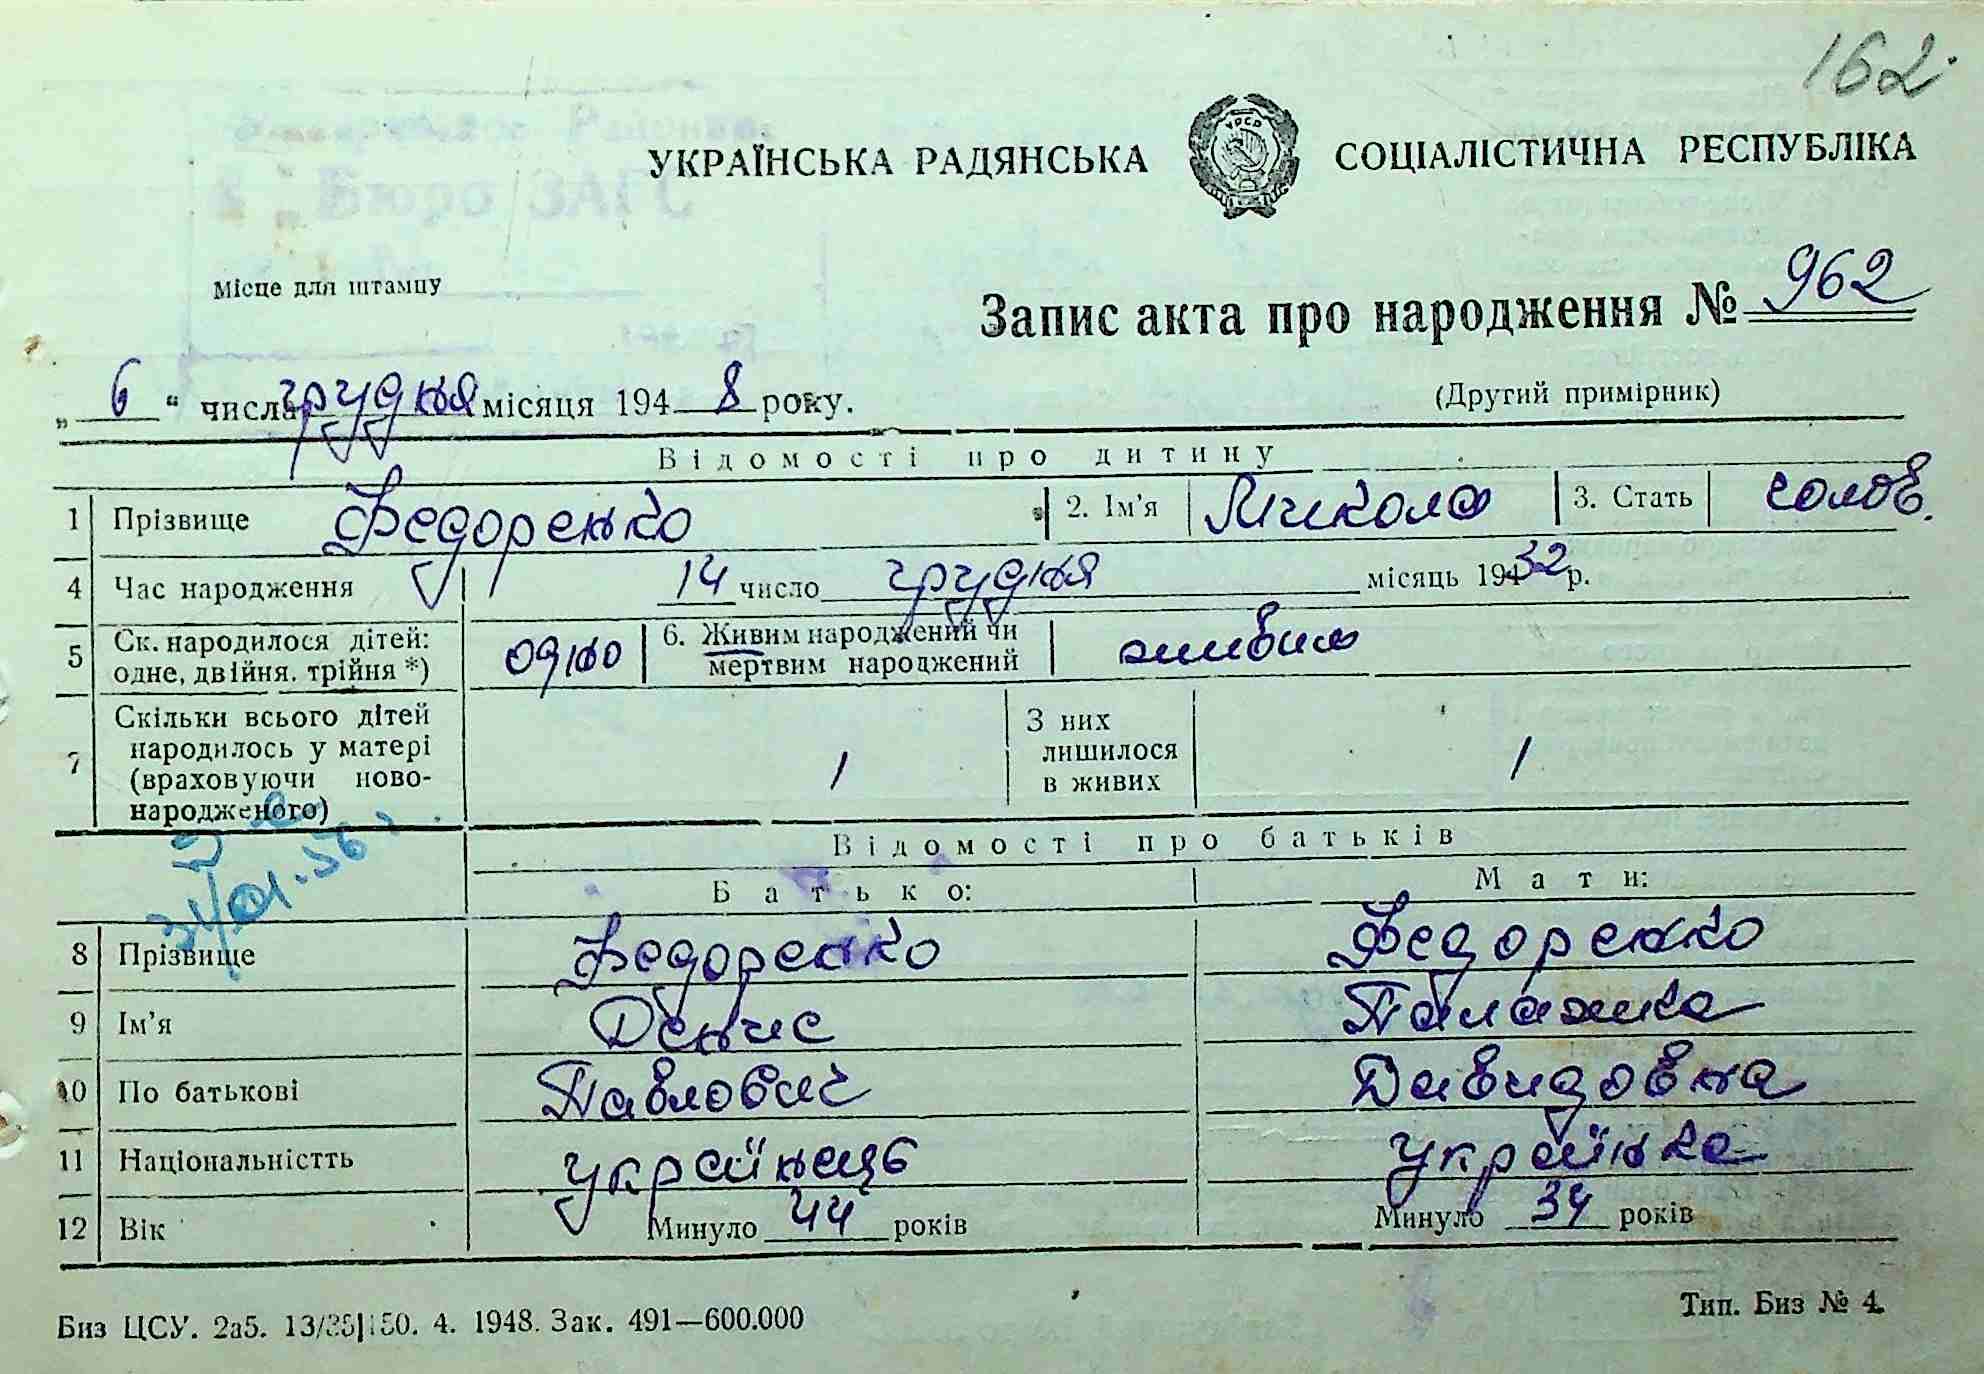 162.
УКРАЇНСЬКА РАДЯНСЬКА СОЦІАЛІСТИЧНА РЕСПУБЛІКА
УРСР
Бюро ЗАГС
Місце для штампу
Запис акта про народження № 962
(Другий примірник)
„ 6 “ числа грудня місяця 194 8 року.
Відомості про дитину
1 Прізвище Федоренко 2. Ім'я Микола 3. Стать чолов.
4 Час народження 14 число грудня місяць 1932 р.
5 Ск. народилося дітей: одне, двійня, трійня *) одно 6. Живим народжений чи мертвим народжений живим
7 Скільки всього дітей народилось у матері (враховуючи новонародженого) 1 З них лишилося в живих 1
Відомості про батьків
Батько: Мати:
8 Прізвище Федоренко Федоренко
9 Ім'я Денис Палажка
10 По батькові Павлович Давидовна
11 Національністть українець українка
12 Вік Минуло 44 років Минуло 34 років
Биз ЦСУ. 2а5. 13/35|150. 4. 1948. Зак. 491—600.000 Тип. Биз № 4.